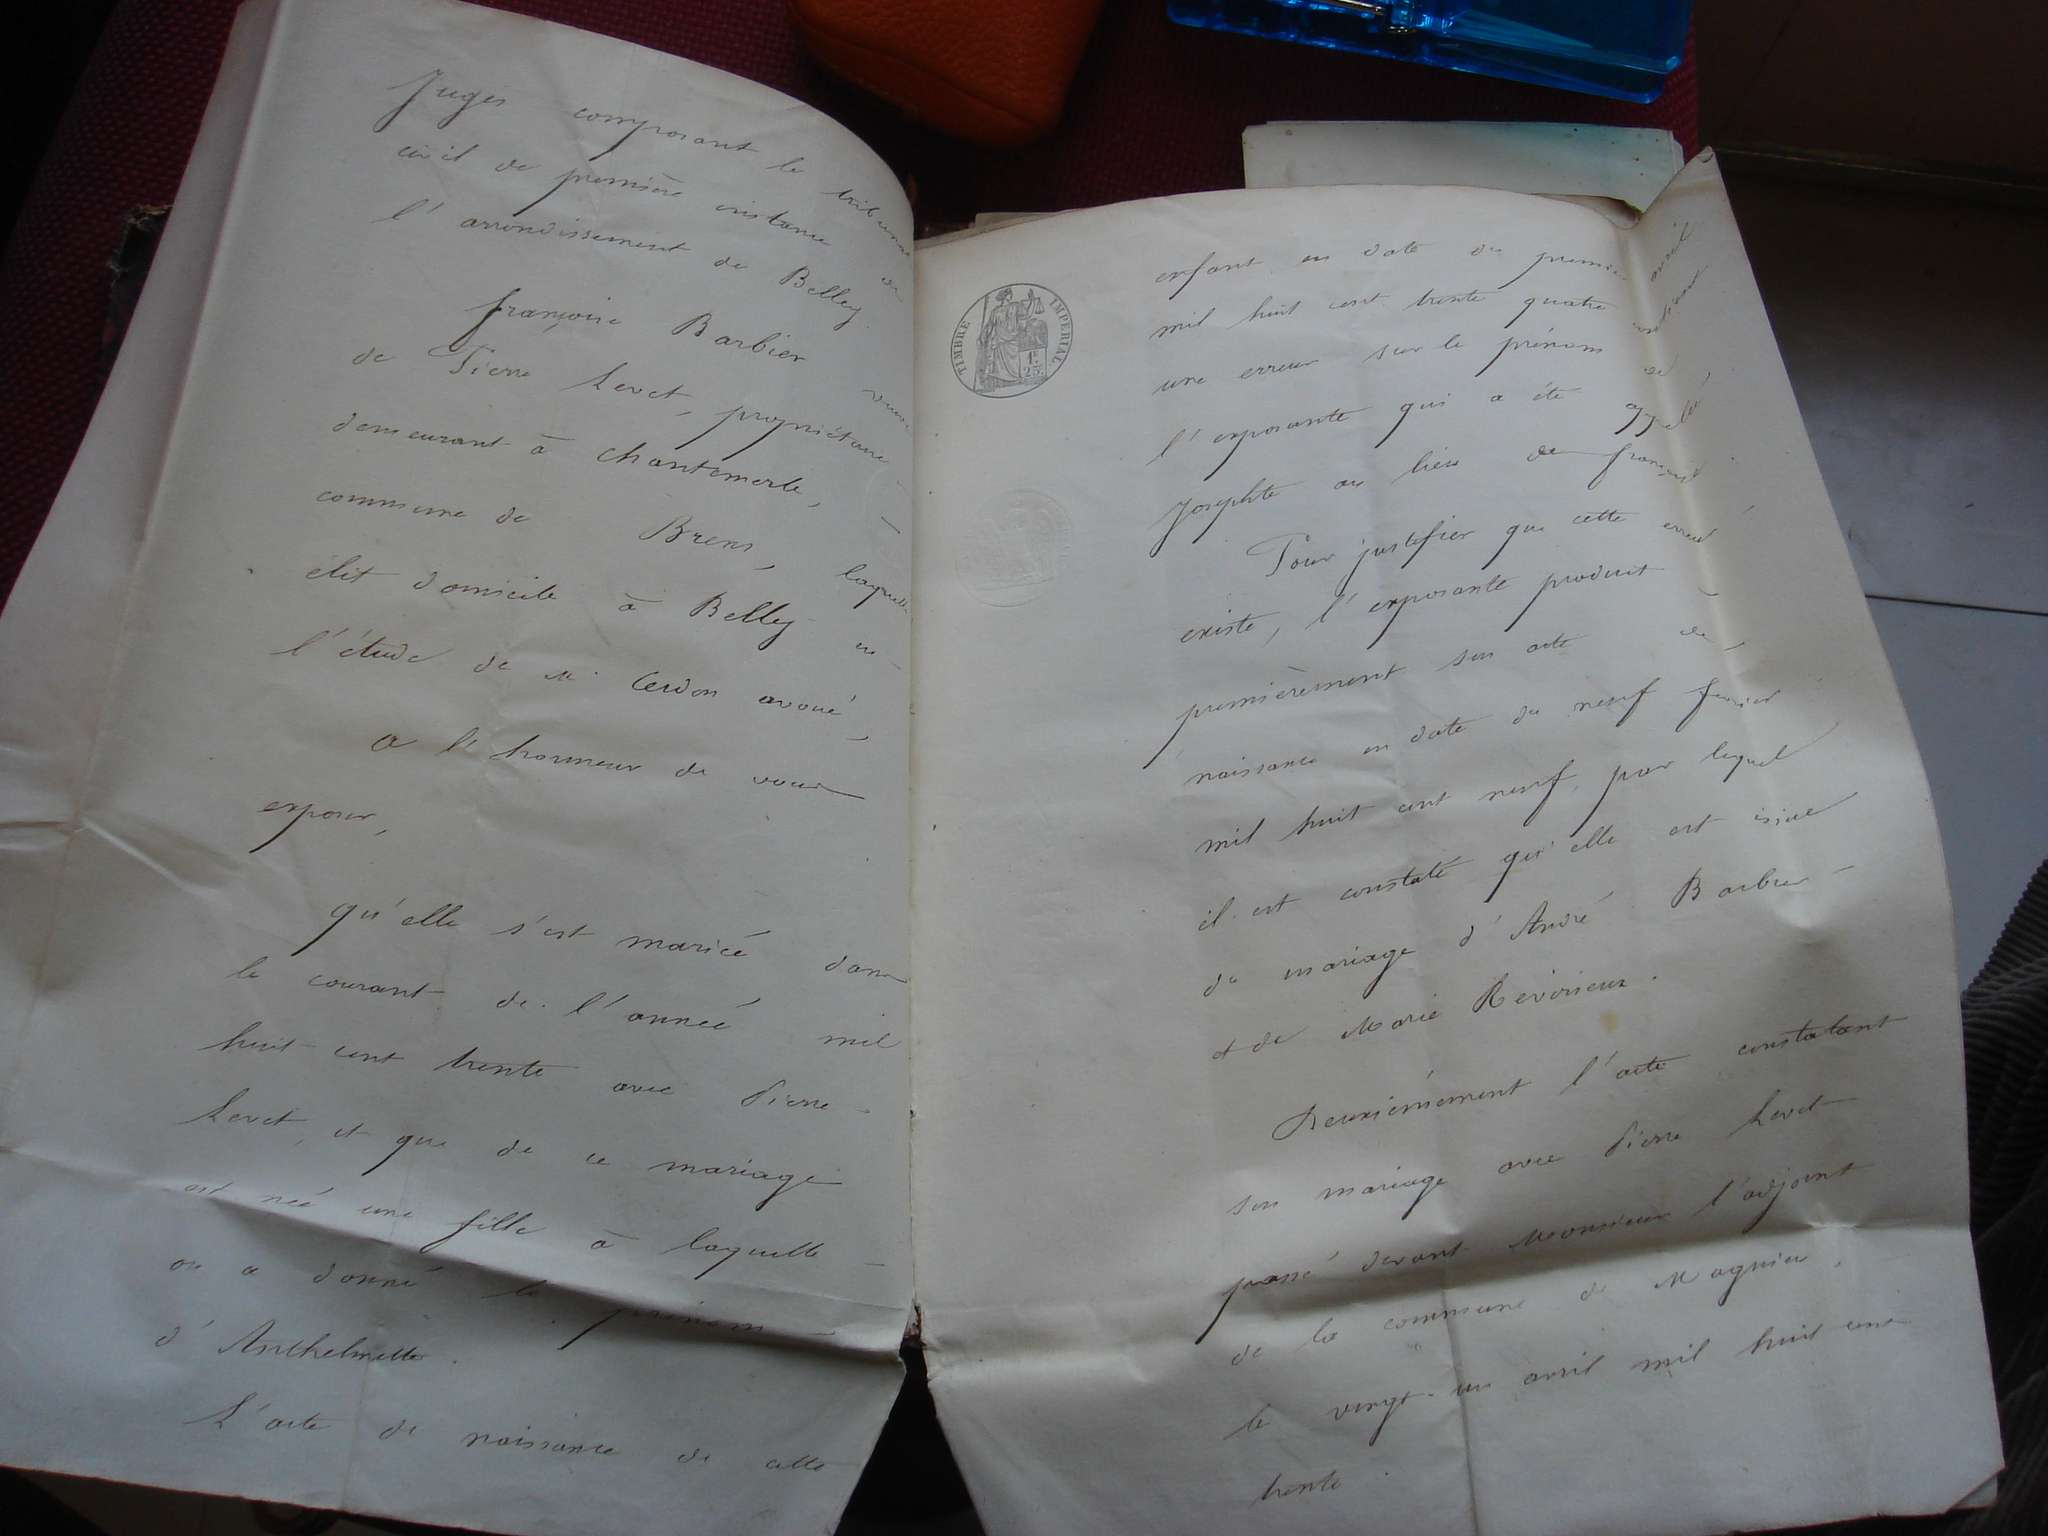 Juges composant le tribunal
civil de première instance de
l'arrondissement de Belley.
françoise Barbier veuve
de Pierre Levet, propriétaire
demeurant à Chantemerle,
commune de Brens, laquelle
élit domicile à Belley en
l'étude de Me Cerdon avoué,
a l'honneur de vous
exposer,
qu'elle s'est mariée dans
le courant de l'année mil
huit cent trente avec Pierre
Levet, et que de ce mariage
est née une fille à laquelle
on a donné le prénom
d'Anthelmette.
L'acte de naissance de cette
TIMBRE IMPERIAL
1F.
25C.
enfant en date du premier avril
mil huit cent trente quatre contient
une erreur sur le prénom de
l'exposante qui a été appelée
Josephte au lieu de françoise
Pour justifier que cette erreur
existe, l'exposante produit
premièrement son acte de
naissance en date du neuf fevrier
mil huit cent neuf, par lequel
il est constaté qu'elle est issue
du mariage d'André Barbier
et de Marie Revérieux.
Deuxièmement l'acte constatant
son mariage avec Pierre Levet
passé devant Monsieur l'adjoint
de la commune de Magnieu,
le vingt-un avril mil huit cent
trente.